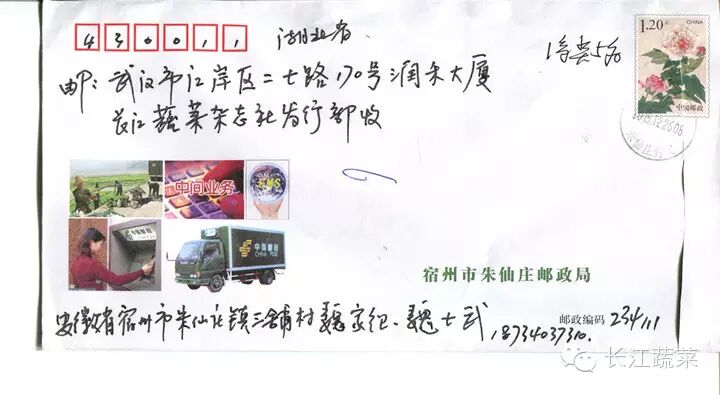 430011
湖北省
1.20元
CHINA
中国邮政
邮:武汉市江岸区二七路170号润禾大厦
长江蔬菜杂志社发行部收
2015.12.26.08
朱仙庄
中间业务
EMS
中国邮政
CHINA POST
宿州市朱仙庄邮政局
安徽省宿州市朱仙庄镇三铺村魏家纪、魏士武
邮政编码 234111
18734037310.
长江蔬菜